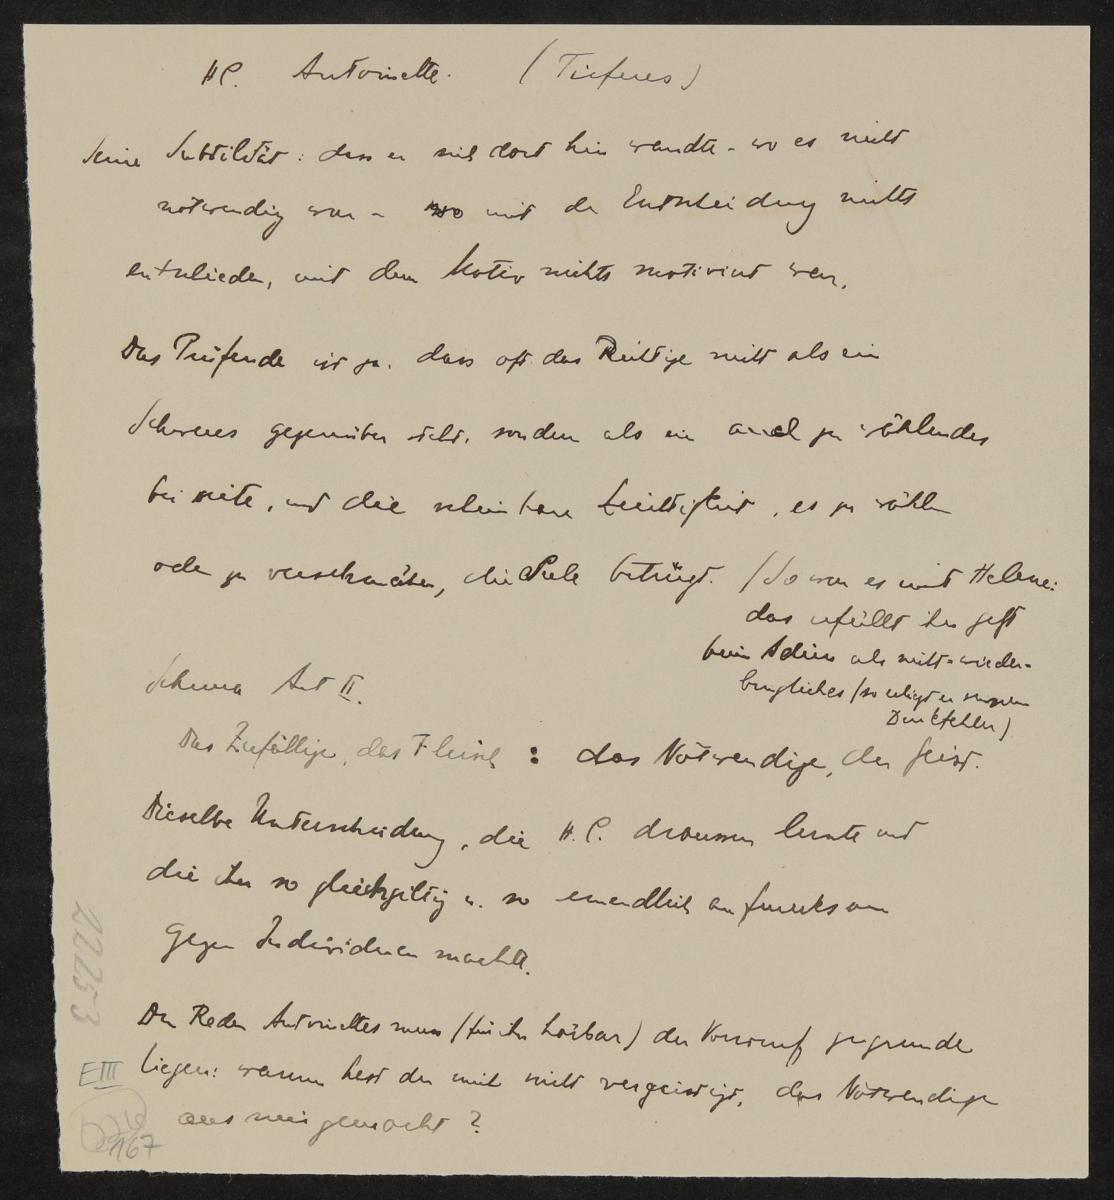 H C. Antoinette. (Tieferes)
Seine Subtilität: dass er sich dort hin wandte – wo es nicht
notwendig war – wo mit der Entscheidung nichts
entschieden, mit dem Motiv nichts motiviert war.
Das Prüfende ist ja. dass oft das Richtige nicht als ein
Schweres gegenüber steht. sondern als ein auch zu wählendes
bei seite, und die scheinbare Leichtigkeit, es zu wählen
oder zu verschmähen, die Seele betrügt. (So war es mit Helene:
das erfüllt ihn
beim Adieu als nicht-wieder-
bringliches (so
Denkfehler)
Schema Act II.
Das Zufällige, das Fleisch : das Notwendige, der Geist.
Dieselbe Unterscheidung, die H. C. draussen lernte und
die ihn so gleichgiltig u. so unendlich aufmerksam
gegen Individuen machte.
Den Reden Antoinettes muss (für ihn hörbar) der Vorwurf zugrunde
liegen: warum hast du mich nicht vergeistigt, das Notwendige
aus mir gemacht?
22253
E III
167